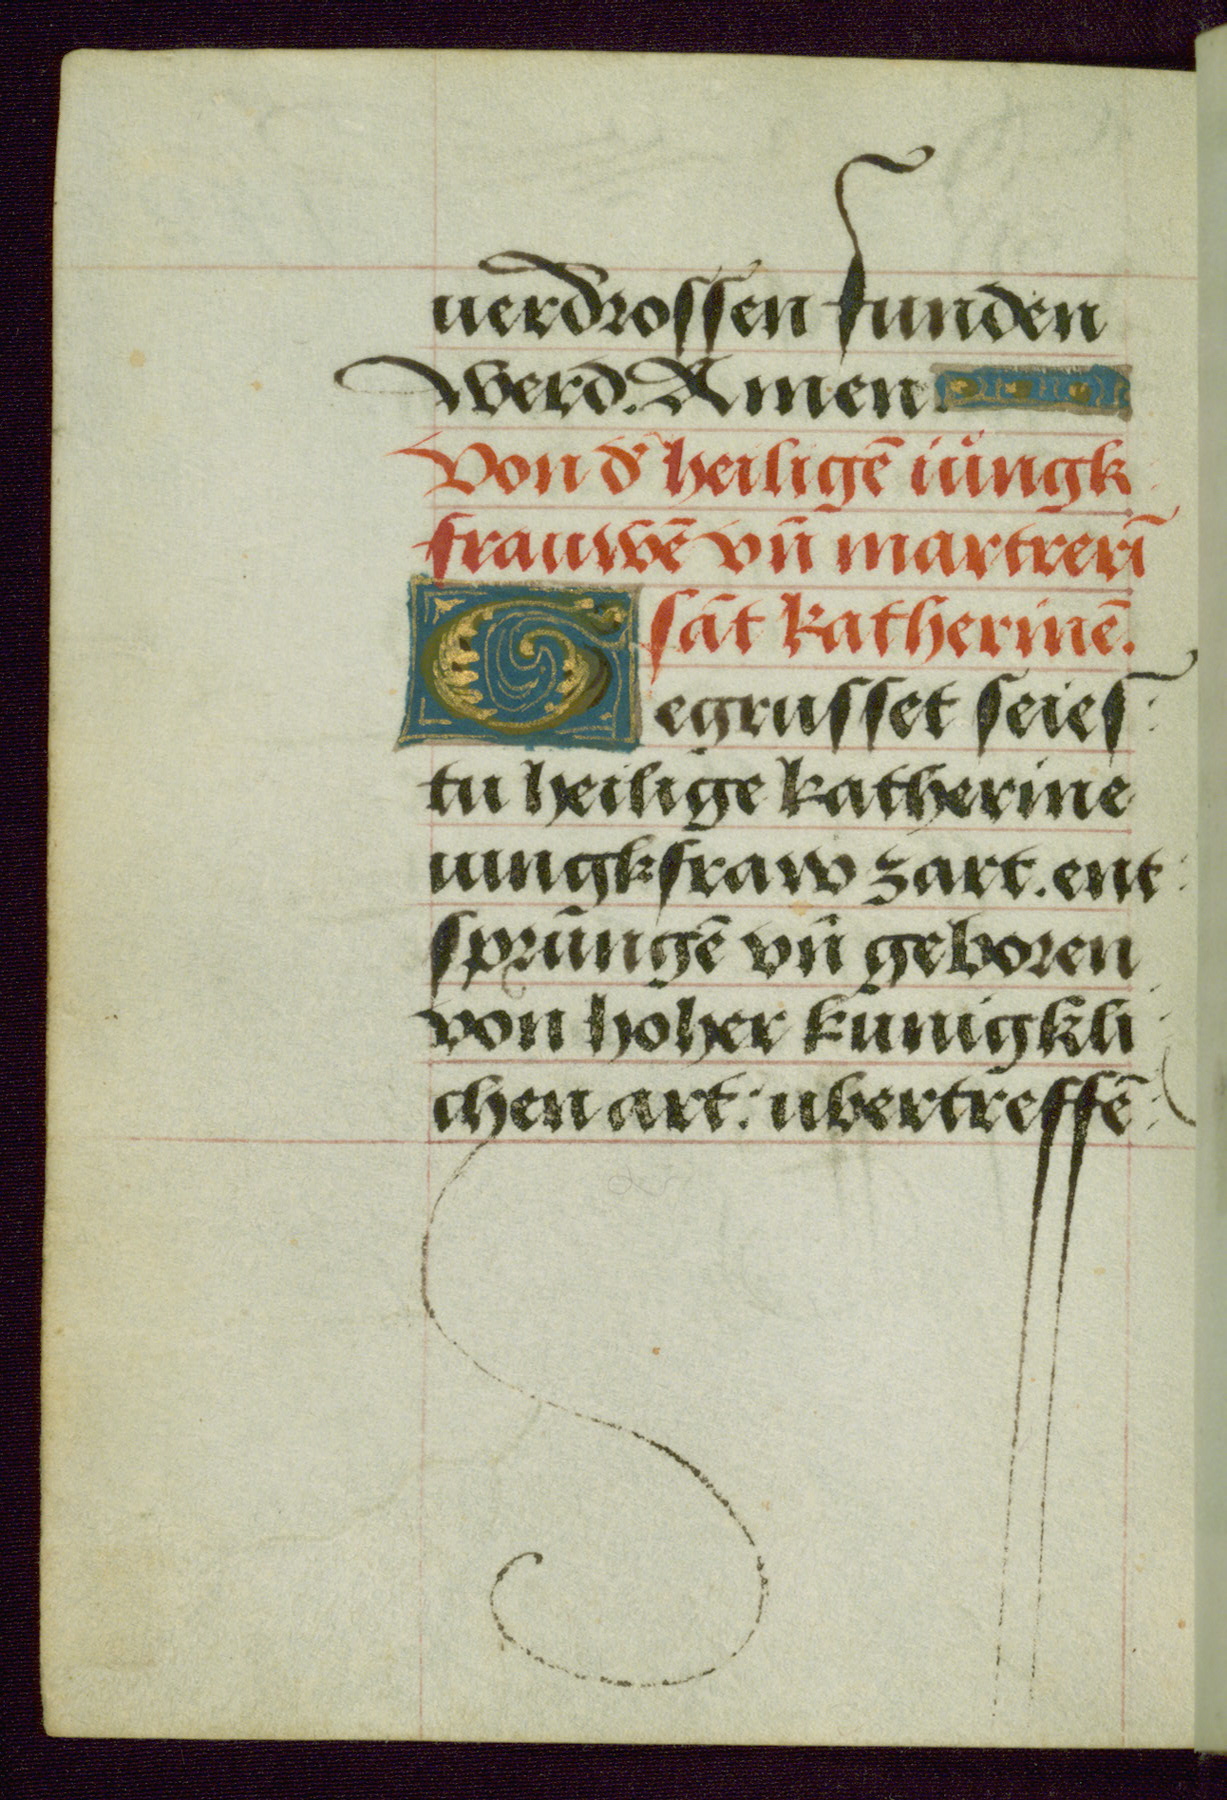 uerdrossen funden
werd. Amen.
Von d' heiligē iůngk
frauwē vn̄ martrerī
sāt katherinē.
Gegrusset seies
tu heilige katherine
iungkfraw zart. ent
sprūngē vn̄ geboren
von hoher kunigkli
chen art: ubertreffē